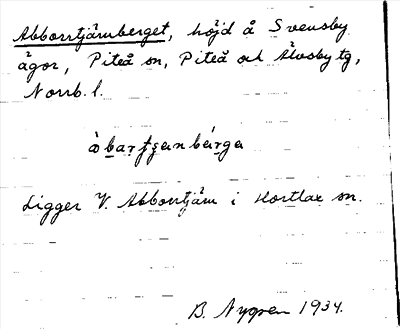 Abborrtjärnberget, höjd å Svensby
ägor, Piteå sn, Piteå och Älvsby tg,
Norrb. l.
Ligger V. Abborrtjärn i Hortlax sn.
B. Nygren 1934.